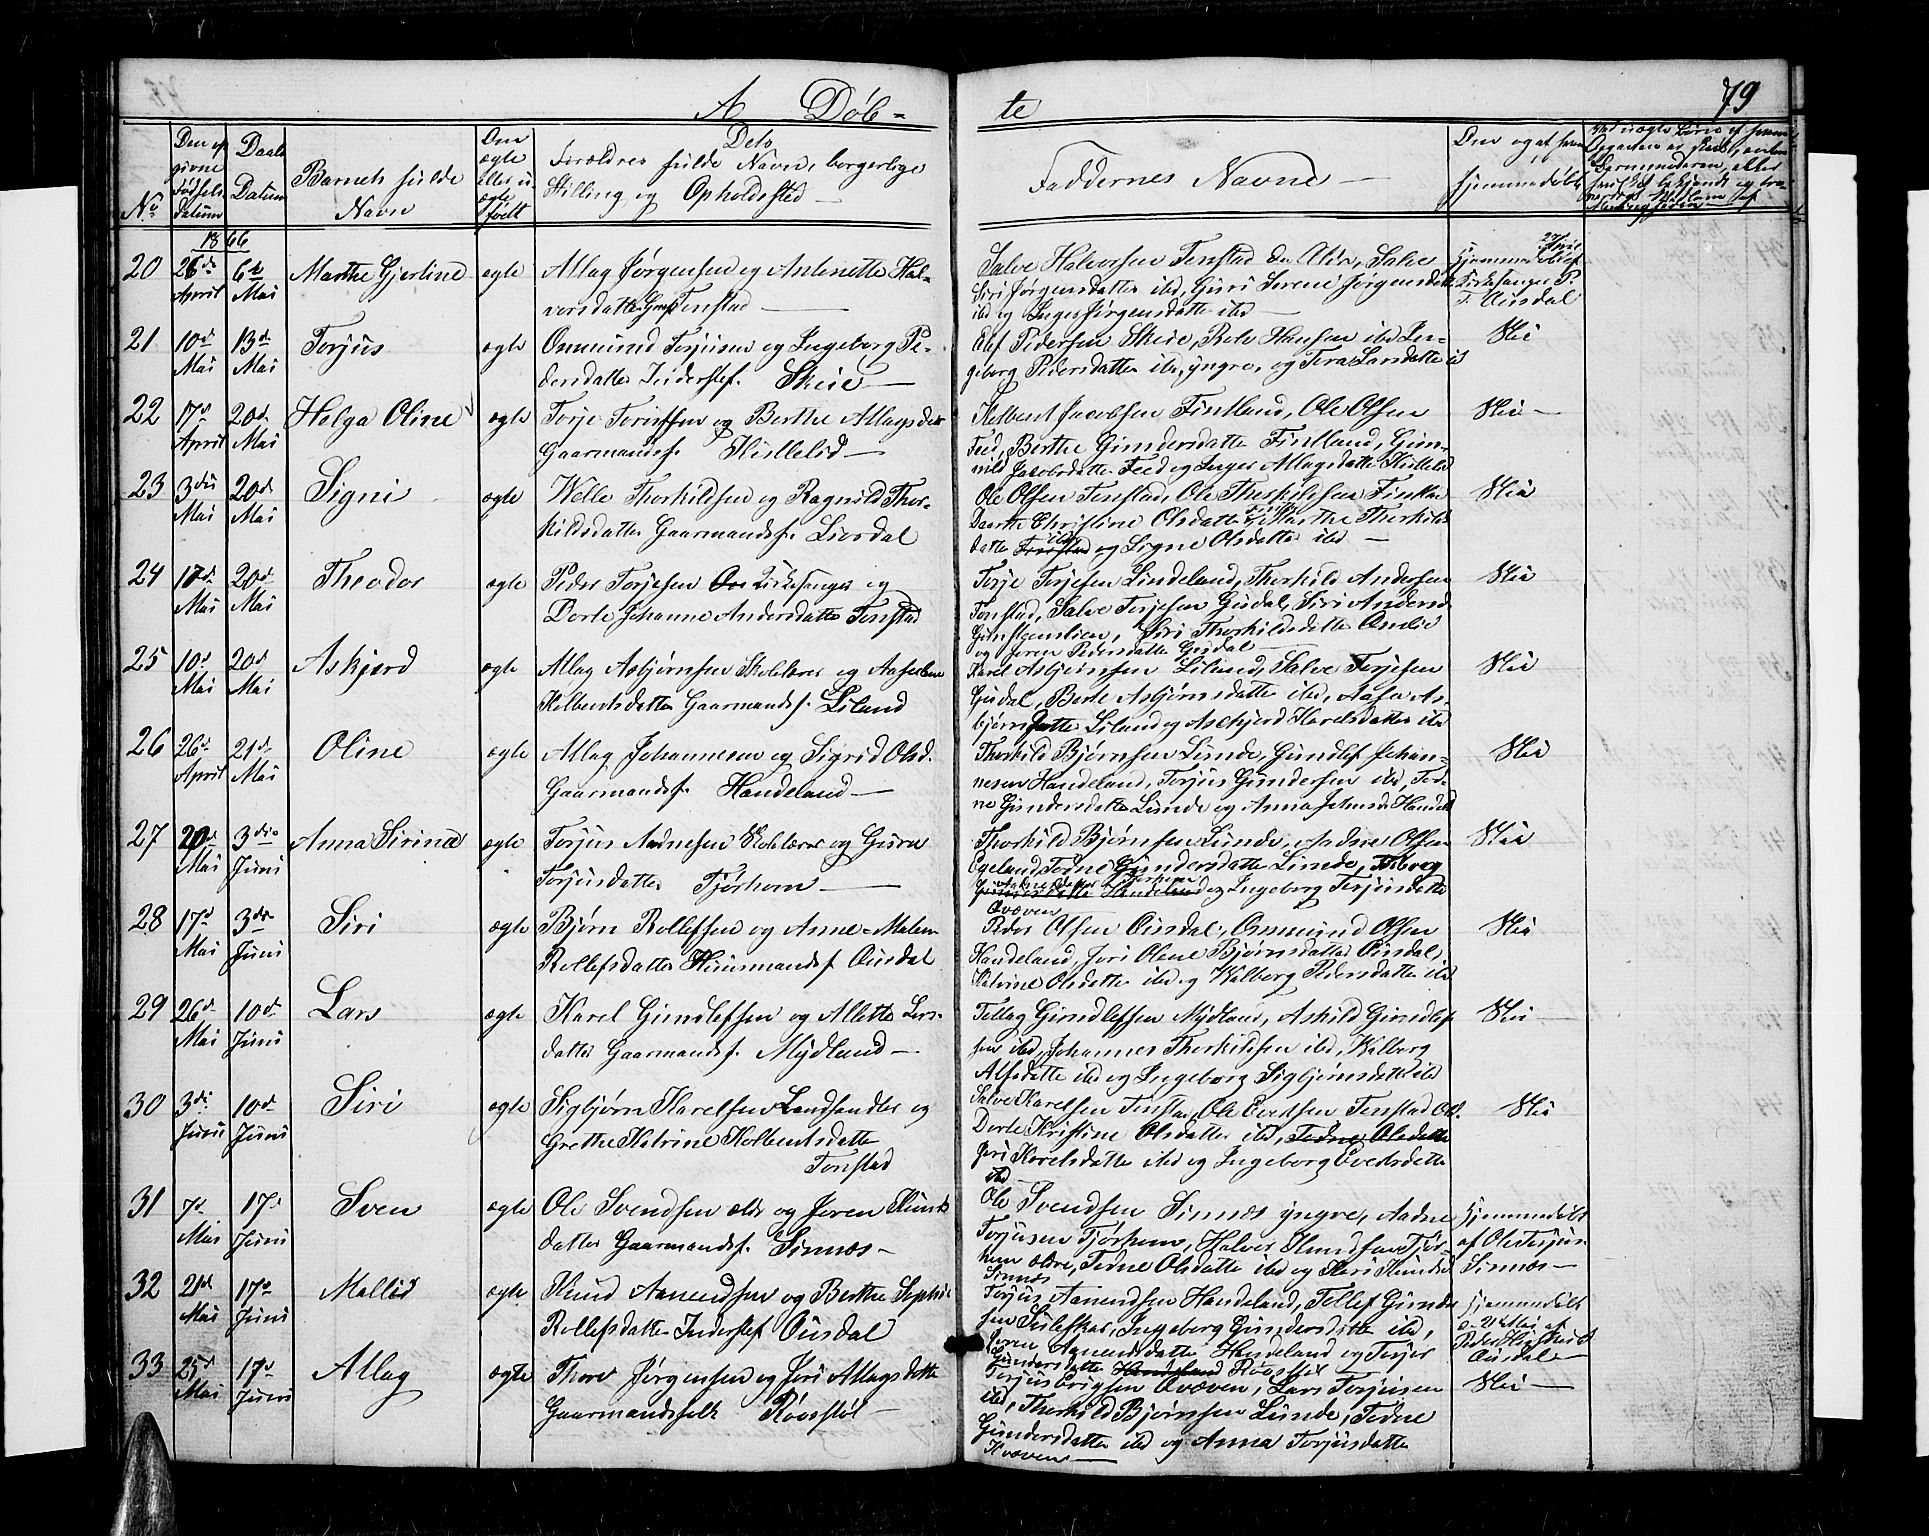 A Døb- te 79
No
Den op
givne
Fødsels
datum
Daabs
Datum
Barnets fulde
Navn
Om
ægte
eller u-
ægte
født
Dets
Forældres fulde Navn, borgerlige
Stilling og Opholdssted
Faddernes Navne
Om og af hvem
hjemmedøbt
1866
20 26de April 6te Mai Marthe Gjertine ægte
Atlag Jørgensen og Antonette Hal-
vorsdatter Gmf Tonstad
Salve Halvorsen Tonstad
Siri Jørgensdatter ibd, Guri Serene Jørgensdatter
ibd og Inger Jørgensdatter ibd
hjemmedøbt af
Kirkesanger P.
T. Ousdal
21 10de Mai 13de Mai Torjus ægte
Ommund Torjusen og Ingeborg Pe-
dersdatter Inderstef. Skeie
Olef Pedersen Skeie, Rele Hansen ibd In-
geborg Pedersdatter ibd, yngre, og Tora Larsdatter ib
Nei
22 17de April 20de Mai Helga Oline ægte
Torje Torissen og Berthe Atlagsdtr
Gaarmandsf. Killelid
Kolbent Jacobsen Fintland, Ole Olsen
Feed, Berthe Gundersdatter Fintland, Gun-
nild Jacobsdatter Feed og Inger Atlagsdatter Killelid
Nei
23 3die Mai 20de Mai Signi ægte
Velle Thorkildsen og Ragnild Thor-
kildsdatter Gaarmandsf. Liordal
Ole Olsen Tonstad, Ole Thorkildsen Finstad
Dorthe Christine Olsdatter Marthe Thorkilds
datter Tonstad og Signe Olsdatter ibd
Nei
24 17de Mai 20de Mai Theodor ægte
Peder Torjesen Kirkesanger og
Dorte Johanne Andersdatter Tonstad
Torje Torjesen Lindeland, Thorkild Andersen
Tonstad, Salve Torjesen Gusdal, Siri Andersd.
Siri Thorkildsdatter Omlie
og Joren Pedersdatter Gusdal
Nei
25 10de Mai 20de Mai Askjerd ægte
Atlag Asbjørnsen Skolelærer og Aase Lene
Kolbentsdatter Gaarmandsf. Liland
Karel Asbjørnsen Liland, Salve Torjesen
Gusdal, Berte Asbjørnsdatter ibd, Aasa As-
bjørnsdatter Liland og Askjerd Karelsdatter ibd
Nei
26 26de April 21de Mai Oline ægte
Atlag Johannesen og Sigrid Olsd.
Gaarmandsf. Handeland
Thorkild Bjørnsen Lunde, Gundlef Johan-
nesen Handeland, Torjus Gundersen ibd, Tod-
ne Gundersdatter Lunde og Anna Johnsd Handel
Nei
27 20de Mai 3die Juni Anna Sirine ægte
Torjus Aadnesen Skolelærer og Guro
Torjusdatter Tjørhom
Thorkild Bjørnsen Lunde, Aadne Olsen
Egeland, Todne Gundersdatter Lunde, Valborg
Gundersdatter Handeland og Ingeborg Torjusdatter
Qvæven
Nei
28 17de Mai 3die Juni Siri ægte
Bjørn Rollefsen og Anne-Malene
Rollefsdatter Huusmandsf Ousdal
Peder Olsen Ousdal, Ommund Olsen
Handeland, Jori Olene Bjørnsdatter Ousdal,
Katrine Olsdatter ibd og Walborg Pedersdatter ibd
Nei
29 26de Mai 10de Juni Lars ægte
Karel Gundlefsen og Allette Lars-
datter Gaarmandsf. Mydland
Tollag Gundlefsen Mydland, Askild Gundlef
sen ibd, Johannes Thorkildsen ibd, Walborg
Alfsdatter ibd og Ingeborg Sigbjørnsdatter ibd
Nei
30 3die Juni 10de Juni Siri ægte
Sigbjørn Karelsen Landhandler og
Grethe Katrine Kolbentsdatter
Tonstad
Salve Karelsen Tonstad, Ole Evertsen Tonstad
Dorte Kristine Olsdatter ibd, Todne Olsdatter
Jori Karelsdatter ibd og Ingeborg Evertsdatter
ibd
Nei
31 7de Mai 17de Juni Sven ægte
Ole Svendsen ældr og Joren Knuds
datter Gaarmandsf. Sinnæs
Ole Svendsen Sinnæs yngre, Aadne
Torjusen Tjørhom, Halvor Knudsen Tjør-
hom ældre, Todne Olsdatter ibd og Kari Knudsd
Sinnæs
hjemmedøbt
af Ole Torjus.
Sinnæs
32 21de Mai 17de Juni Mallid ægte
Knud Aanensen og Berthe Sophie
Rollefsdatter Inderstef Ousdal
Torjus Aanensen Handeland, Tollef Gunder
sen Fuleskar, Ingeborg Gundersdatter ibd,
Joren Aanensdatter Handeland og Torjer
Gundersdatter Handeland Røvsstøl
hjemmedøbt
d. 21de Mai af
Ousdal
33 25de Mai 17de Juni Atlag ægte
Thore Jørgensen og Jori Atlagsdatter
Gaarmandsfolk Røvsstøl
Torjus Erigsen Qvæven, Lars Torjusen
ibd, Thorkild Bjørnsen Lunde, Todne
Gundersdatter ibd og Anna Torjusdatter
Kvæven
Nei